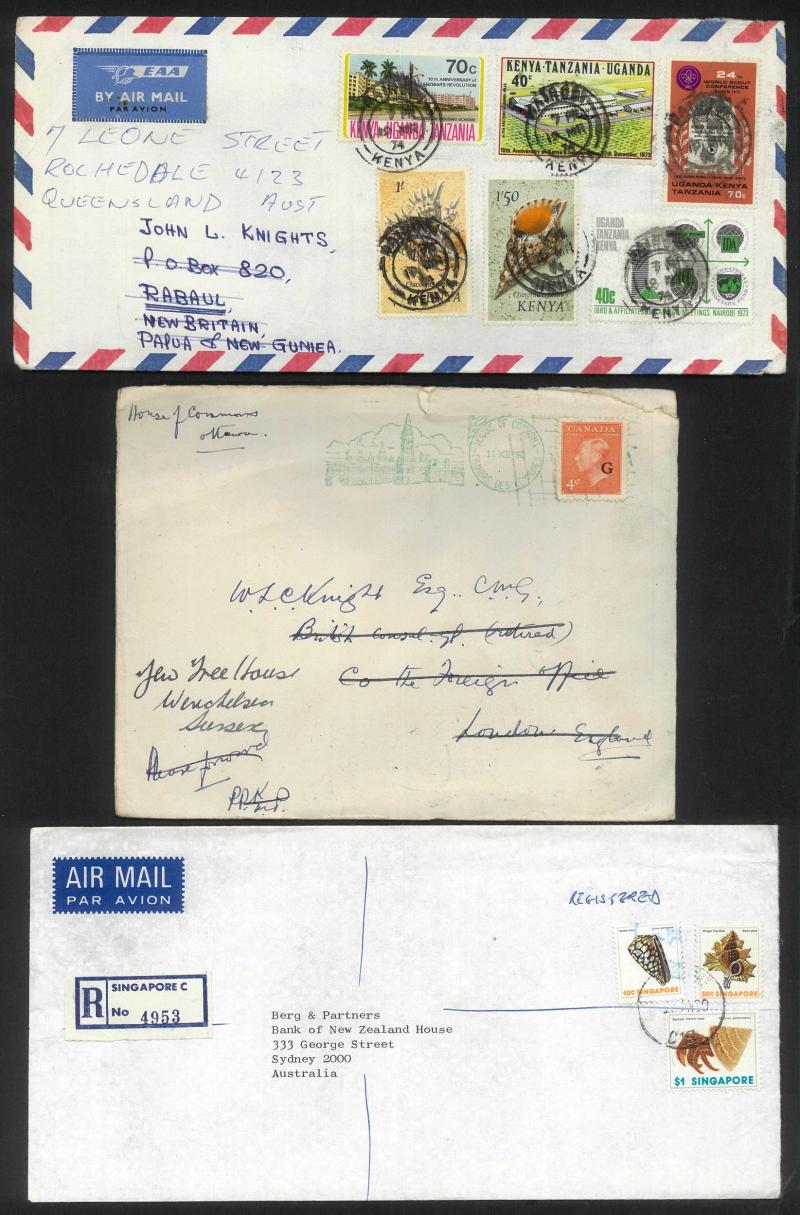 EAA
BY AIR MAIL
PAR AVION
7 LEONE STREET
ROCHEDALE 4123
QUEENSLAND AUST
JOHN L. KNIGHTS,
P.O BOX 820,
RABAUL,
NEW BRITAIN,
PAPUA & NEW GUNIEA.
70c
10th ANNIVERSARY of
ZANZIBAR'S REVOLUTION
KENYA UGANDA TANZANIA
KENYA·TANZANIA·UGANDA
40c
NAIROBI
74
KENYA
24th
WORLD SCOUT
CONFERENCE
UGANDA·KENYA
TANZANIA 70c
1/-
KENYA
1/50
KENYA
UGANDA
TANZANIA
KENYA
IDA
40c
IBRD & AFFILIATES MEETINGS NAIROBI 1973
House of Commons
Ottawa.
HOUSE OF COMMONS
CHAMBRE DES COMMUNES
CANADA
4c
G
W L C Knight Esq., C.M.G.,
British Consul-Gl. (retired)
Co the Foreign Office
London England
Yew Tree House
Winchelsea
Sussex
Please forward
AIR MAIL
PAR AVION
REGISTERED
R
SINGAPORE C
No 4953
Berg & Partners
Bank of New Zealand House
333 George Street
Sydney 2000
Australia
SINGAPORE
50c SINGAPORE
$1 SINGAPORE